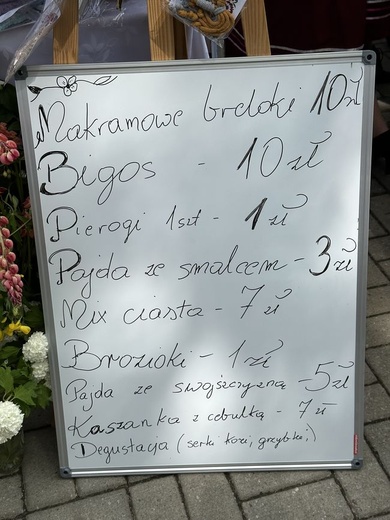 Makramowe breloki 10 zł
Bigos - 10 zł
Pierogi 1szt - 1 zł
Pajda ze smalcem - 3 zł
Mix ciasta - 7 zł
Brozioki - 1 zł
Pajda ze swojszczyzną - 5 zł
Kaszanka z cebulką - 7 zł
Degustacja (serki kozi, grzybki,)